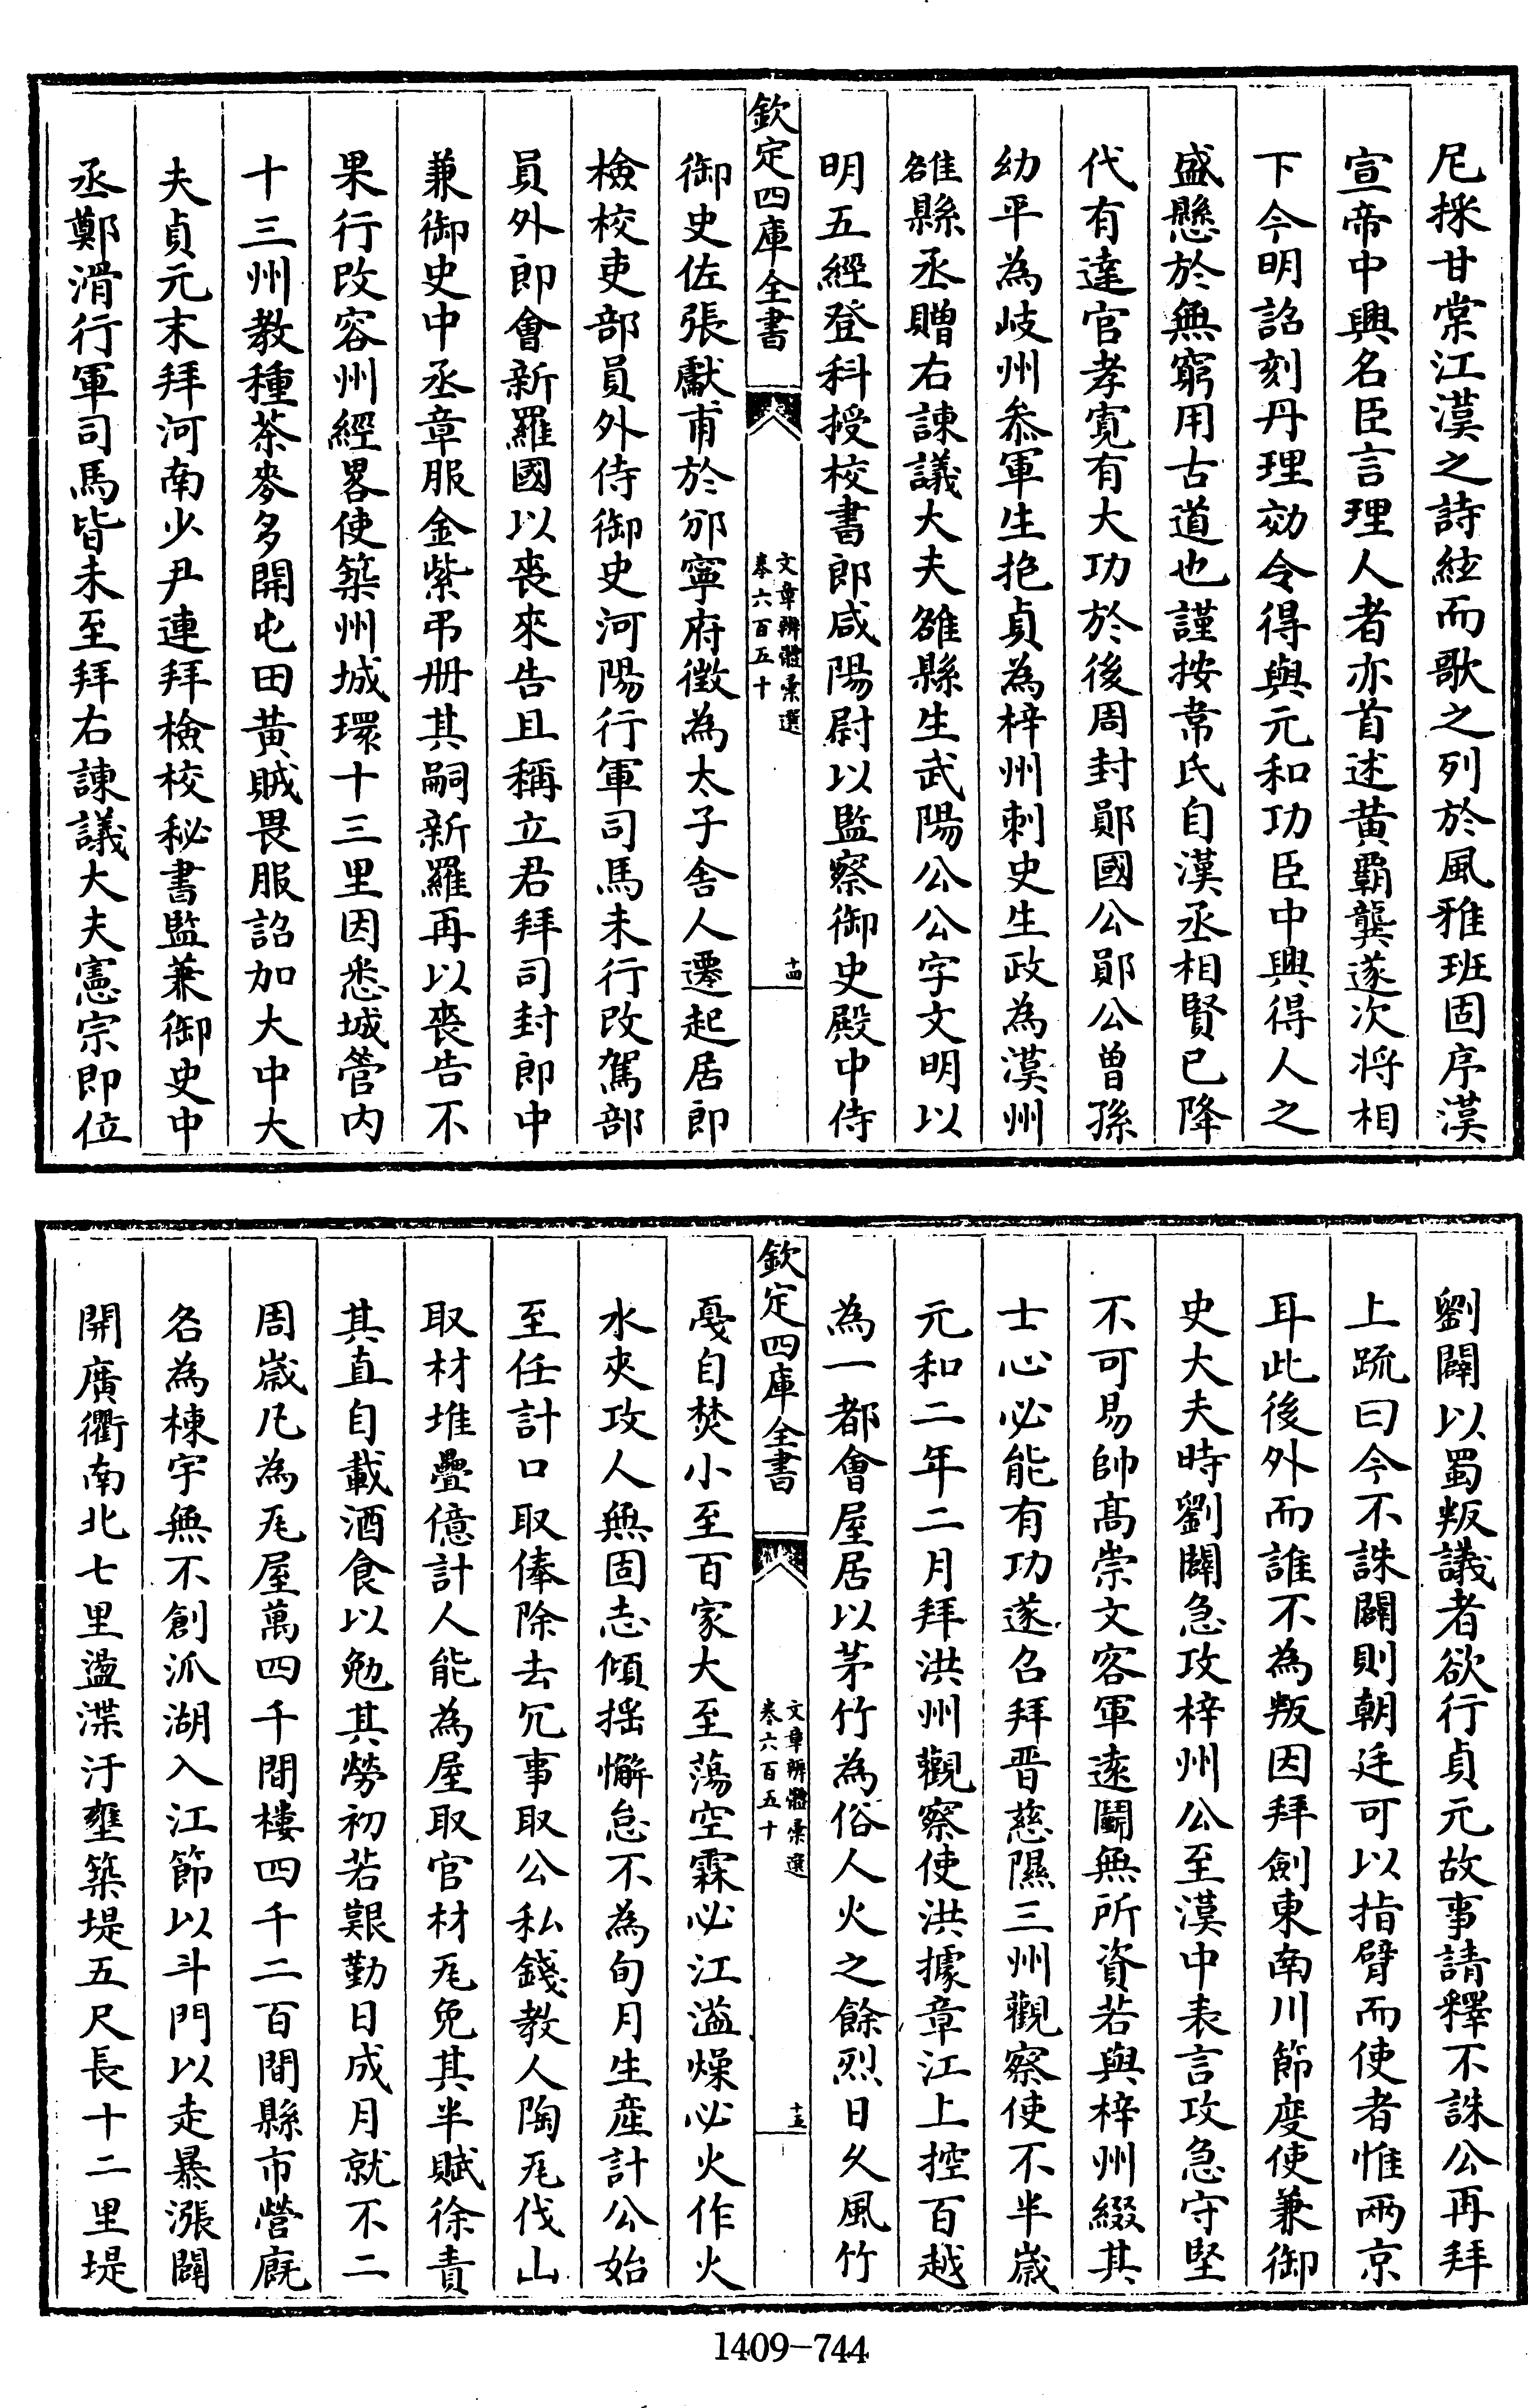 尼採甘棠江漢之詩絃而歌之列於風雅班固序漢
宣帝中興名臣言理人者亦首述黄霸龔遂次将相
下今明詔刻丹理効令得與元和功臣中興得人之
盛懸於無窮用古道也謹按韋氏自漢丞相賢已降
代有達官孝寛有大功於後周封鄖國公鄖公曾孫
幼平為岐州叅軍生抱貞為梓州刺史生政為漢州
雒縣丞贈右諫議大夫雒縣生武陽公公字文明以
明五經登科授校書郎咸陽尉以監察御史殿中侍
欽定四庫全書
文章辨體彚選
卷六百五十
十四
御史佐張獻甫於邠寧府徴為太子舎人遷起居郎
檢校吏部員外侍御史河陽行軍司馬未行改駕部
員外郎會新羅國以喪來告且稱立君拜司封郎中
兼御史中丞章服金紫弔册其嗣新羅再以喪告不
果行改容州經畧使築州城環十三里因悉城管内
十三州教種茶麥多開屯田黄賊畏服詔加大中大
夫貞元末拜河南少尹連拜檢校秘書監兼御史中
丞鄭滑行軍司馬皆未至拜右諫議大夫憲宗即位
劉闢以蜀叛議者欲行貞元故事請釋不誅公再拜
上疏曰今不誅闢則朝廷可以指臂而使者惟兩京
耳此後外而誰不為叛因拜劍東南川節度使兼御
史大夫時劉闢急攻梓州公至漢中表言攻急守堅
不可易帥髙崇文客軍逺鬬無所資若與梓州綴其
士心必能有功遂召拜晋慈隰三州觀察使不半歳
元和二年二月拜洪州觀察使洪據章江上控百越
為一都會屋居以茅竹為俗人火之餘烈日久風竹
欽定四庫全書
文章辨體彚選
卷六百五十
十五
戛自焚小至百家大至蕩空霖必江溢燥必火作火
水夾攻人無固志傾揺懈怠不為旬月生産計公始
至任計口取俸除去冗事取公私錢教人陶瓦伐山
取材堆疊億計人能為屋取官材瓦免其半賦徐責
其直自載酒食以勉其勞初若艱勤日成月就不二
周歳凡為瓦屋萬四千間樓四千二百間縣市營廐
名為棟宇無不創派湖入江節以斗門以走暴漲闢
開廣衢南北七里盪渫汙壅築堤五尺長十二里堤
1409-744